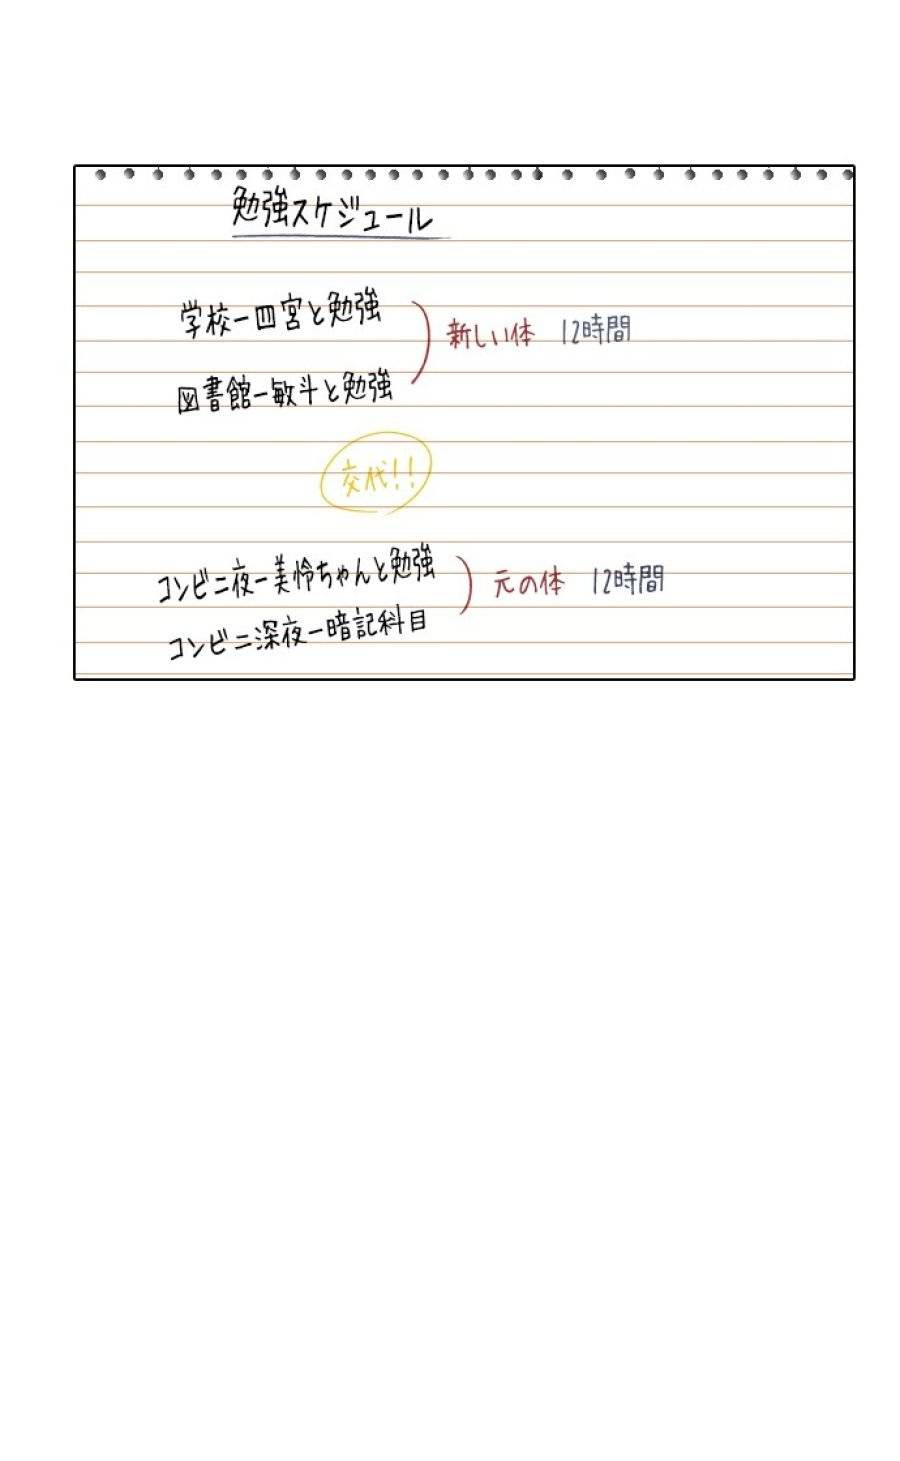 勉強スケジュール
学校ー四宮と勉強
新しい体 12時間
図書館ー敏斗と勉強
交代!!
コンビニ夜ー美怜ちゃんと勉強
元の体 12時間
コンビニ深夜ー暗記科目